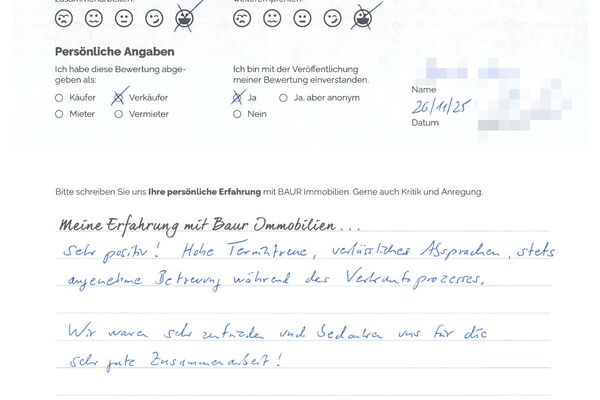 zusammenarbeiten. weiterempfehlen.
Persönliche Angaben
Ich habe diese Bewertung abge-
geben als:
Käufer Verkäufer
Mieter Vermieter
Ich bin mit der Veröffentlichung
meiner Bewertung einverstanden.
Ja Ja, aber anonym
Nein
Name
26/11/25
Datum
Bitte schreiben Sie uns Ihre persönliche Erfahrung mit BAUR Immobilien. Gerne auch Kritik und Anregung.
Meine Erfahrung mit Baur Immobilien . . .
Sehr positiv! Hohe Termintreue, verlässliche Absprachen, stets
angenehme Betreuung während des Verkaufsprozesses.
Wir waren sehr zufrieden und bedanken uns für die
sehr gute Zusammenarbeit!